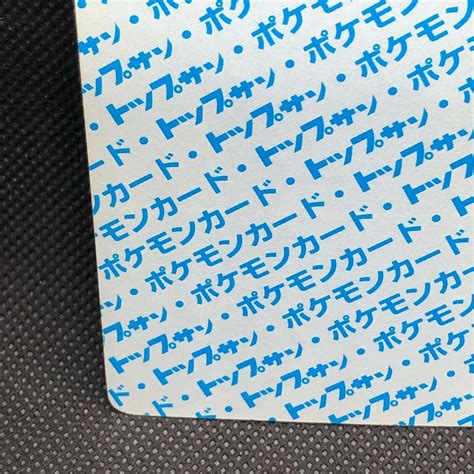 トップサン・ポケモン
ド・トップサン・ポケモンカ
カード・トップサン・ポケモン
モンカード・トップサン・ポケ
ポケモンカード・トップサン
・ポケモンカード・トップサン
サン・ポケモンカード・トップ
トップサン・ポケモンカード
・トップサン・ポケモンカード
ド・トップサン・ポケモン
トップサン・ポケ
トップサン